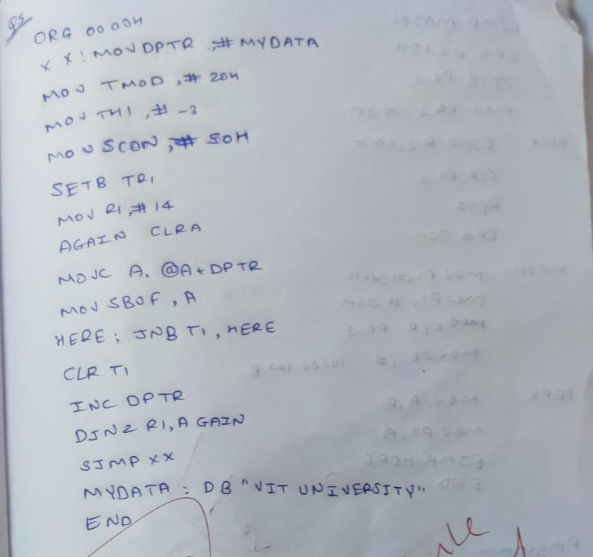 Q5
ORG 0000H
XX: MOV DPTR, #MYDATA
MOV TMOD, #20H
MOV TH1, #-3
MOV SCON, #50H
SETB TR1
MOV R1, #14
AGAIN CLRA
MOVC A, @A+DPTR
MOV SBUF, A
HERE: JNB T1, HERE
CLR T1
INC DPTR
DJNZ R1, AGAIN
SJMP XX
MYDATA: DB "VIT UNIVERSITY"
END